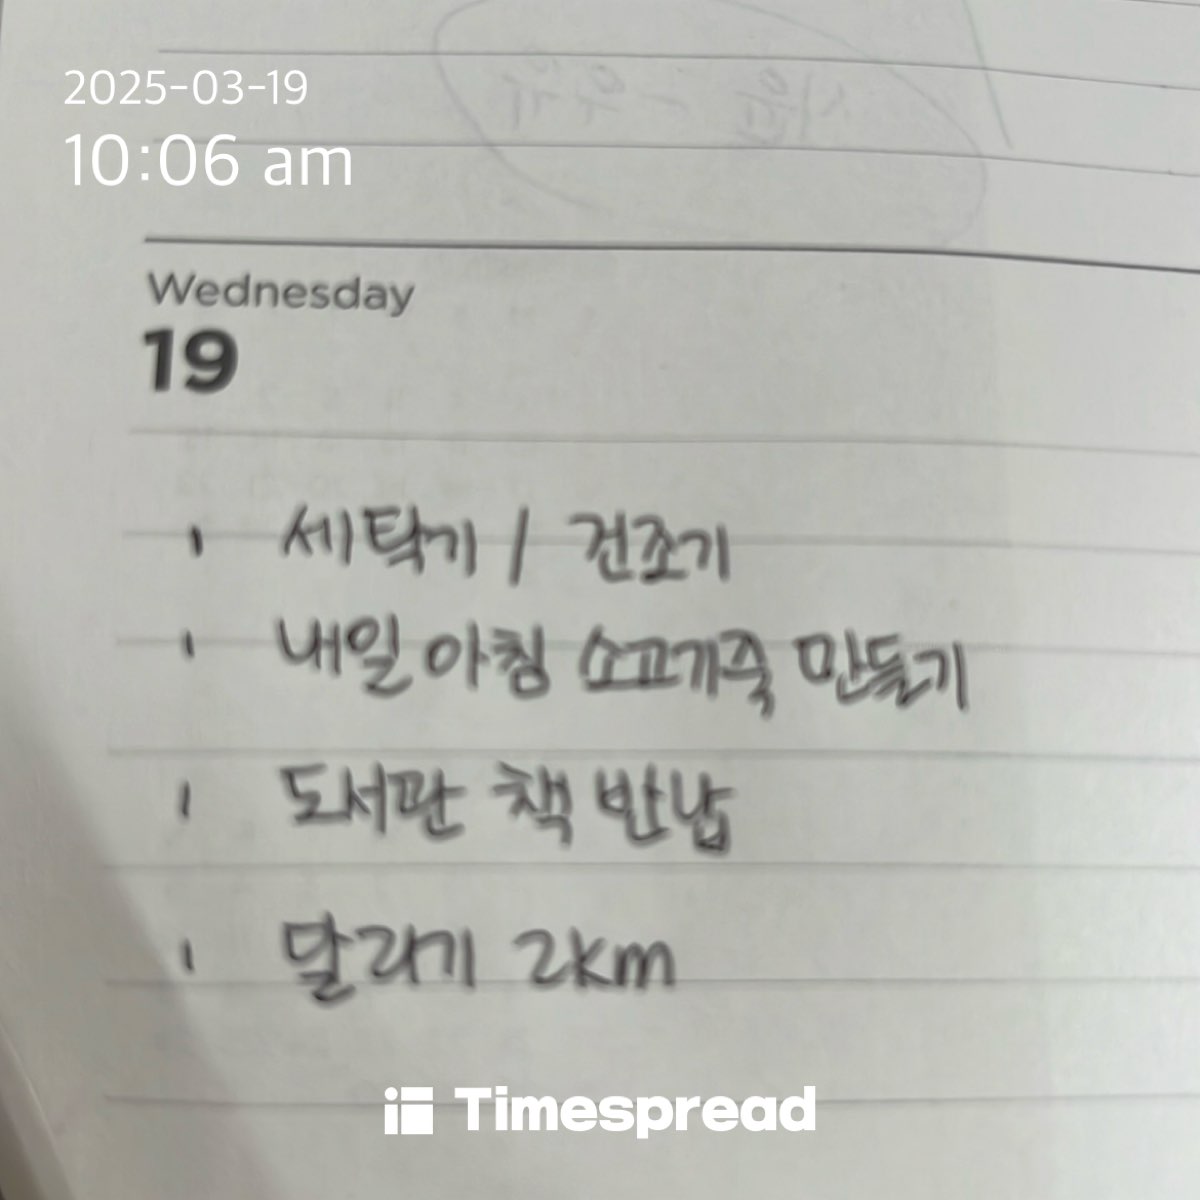 2025-03-19
10:06 am
Wednesday
19
세탁기 / 건조기
내일 아침 소고기죽 만들기
도서관 책 반납
달리기 2km
Timespread